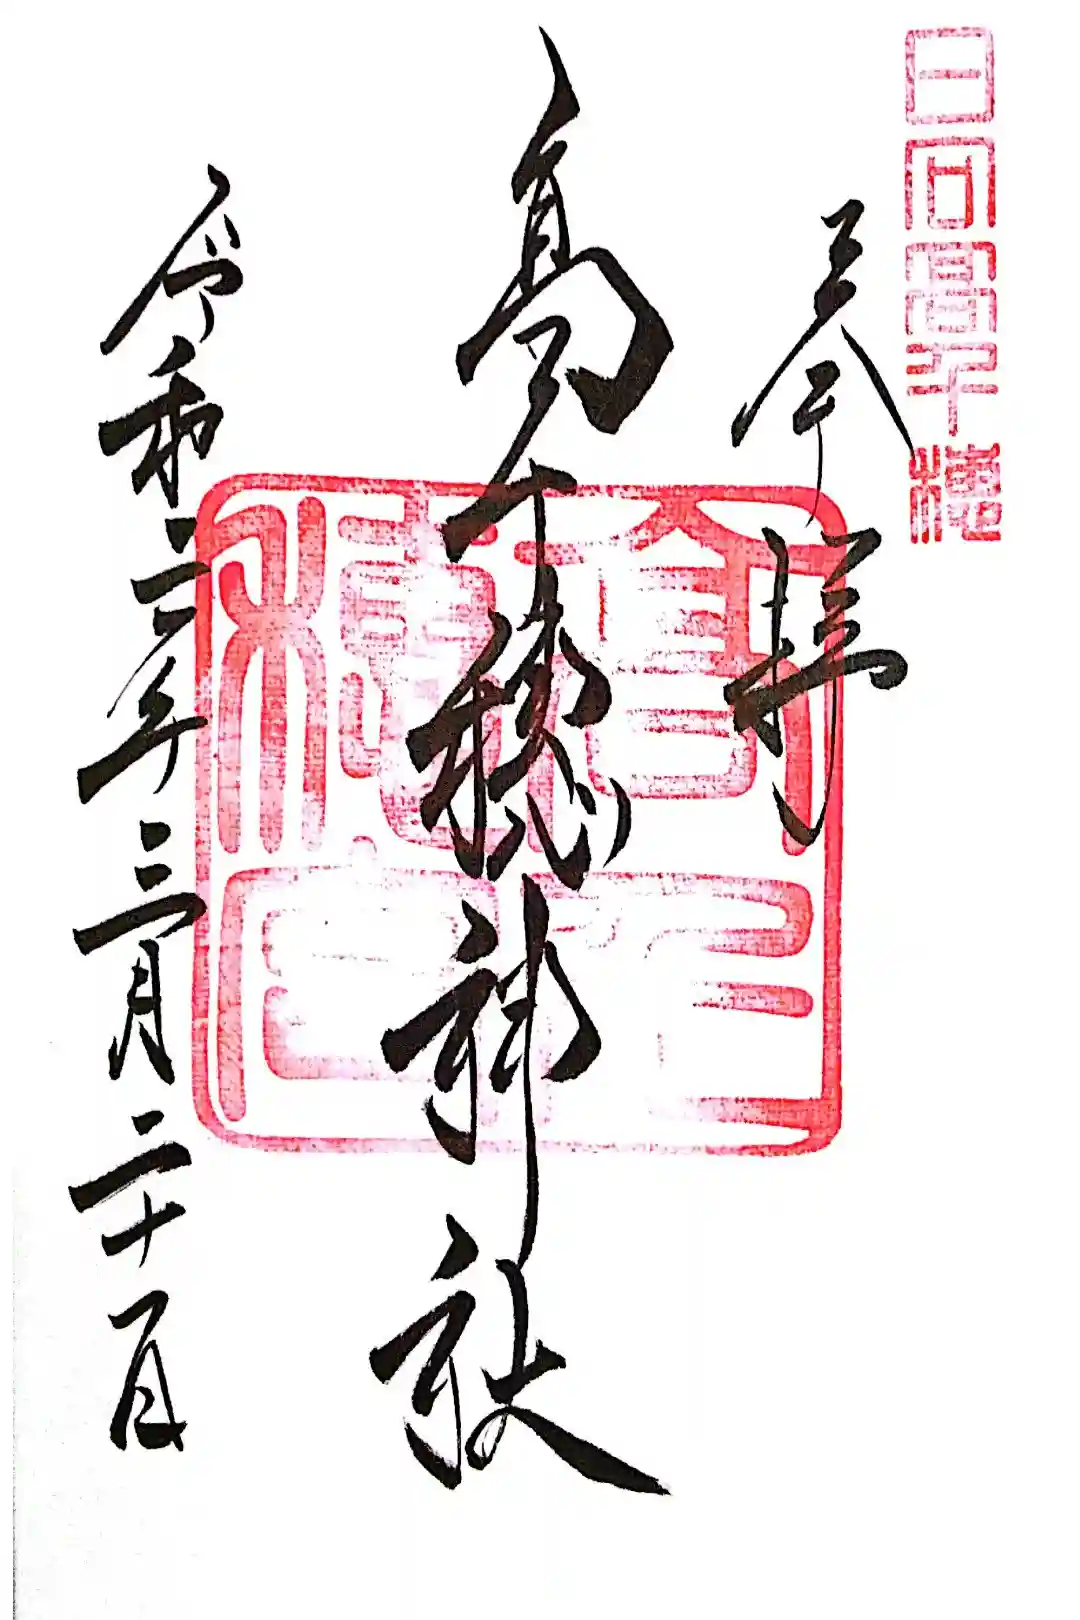 日向高千穂
奉拝
高千穂神社
高千
穂宮
令和二年三月二十一日